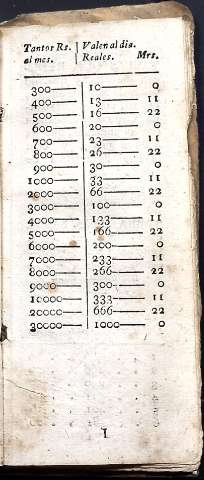 Tantos Rs. | Valen al dia.
al mes. | Reales. Mrs.
300— | 10— 0
400— | 13— 11
500— | 16— 22
600— | 20— 0
700— | 23— 11
800— | 26— 22
900— | 30— 0
1000— | 33— 11
2000— | 66— 22
3000— | 100— 0
4000— | 133— 11
5000— | 166— 22
6000— | 200— 0
7000— | 233— 11
8000— | 266— 22
9000— | 300— 0
10000— | 333— 11
20000— | 666— 22
30000— | 1000— 0
I